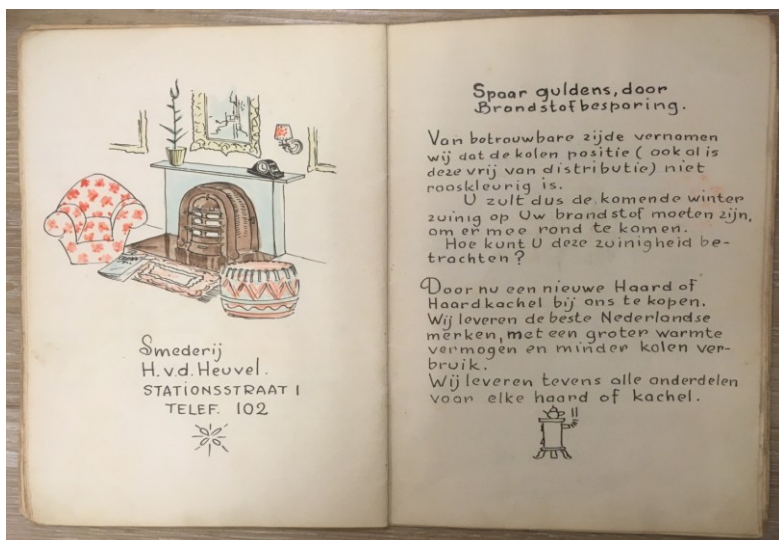 Smederij
H. v. d. Heuvel.
STATIONSSTRAAT 1
TELEF. 102
Spaar guldens, door
Brandstofbesparing.
Van betrouwbare zijde vernamen
wij dat de kolen positie ( ook al is
deze vrij van distributie) niet
rooskleurig is.
U zult dus de komende winter
zuinig op Uw brandstof moeten zijn,
om er mee rond te komen.
Hoe kunt U deze zuinigheid be-
trachten ?
Door nu een nieuwe Haard of
Haardkachel bij ons te kopen.
Wij leveren de beste Nederlandse
merken, met een groter warmte
vermogen en minder kolen ver-
bruik.
Wij leveren tevens alle onderdelen
voor elke haard of kachel.